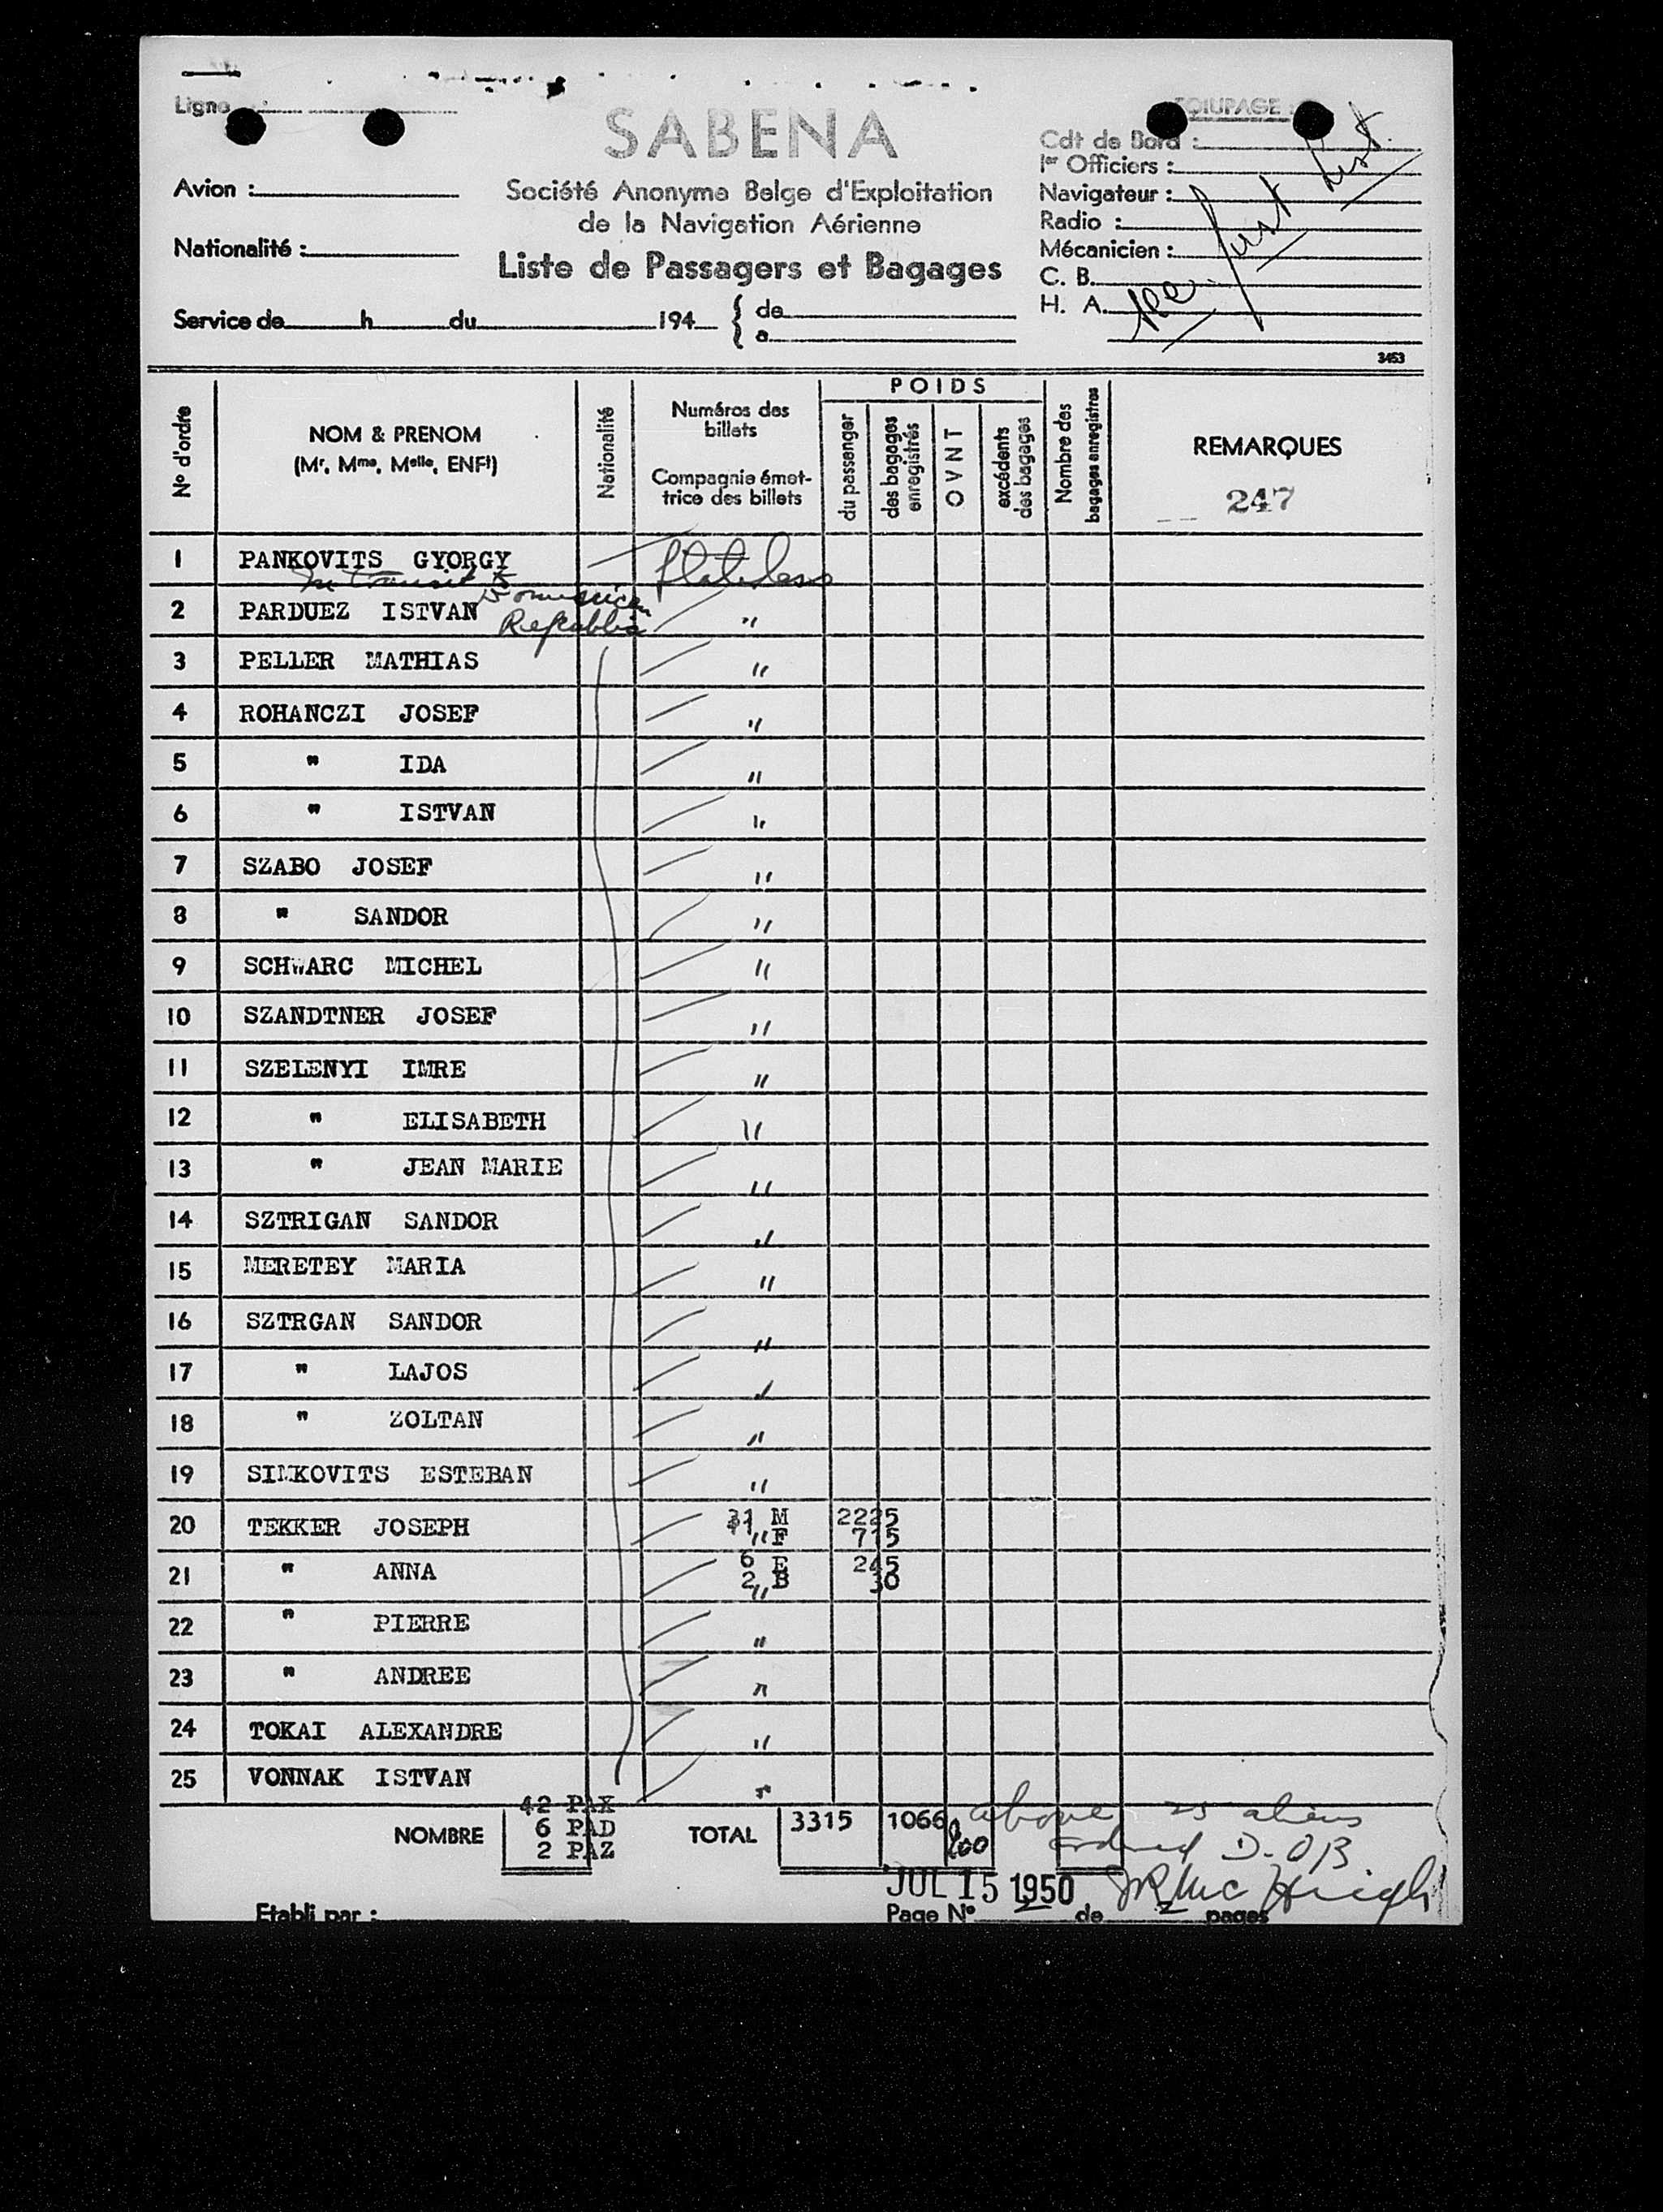 Ligne
SABENA
Société Anonyme Belge d'Exploitation
de la Navigation Aérienne
Liste de Passagers et Bagages
Avion :
Nationalité :
Service de h du 194 { de
a
Cdt de Bord :
1er Officiers :
Navigateur :
Radio :
Mécanicien :
C. B.
H. A.
See first List
3453
N° d'ordre
NOM & PRENOM
(Mr, Mme, Melle, ENFt)
Nationalité
Numéros des
billets
Compagnie émet-
trice des billets
POIDS
du passenger
des bagages
enregistrés
OVNT
excédents
des bagages
Nombre des
bagages enregistres
REMARQUES
247
1 PANKOVITS GYORGY Stateless
In transit to
Dominican
Republic
2 PARDUEZ ISTVAN "
3 PELLER MATHIAS "
4 ROHANCZI JOSEF "
5 " IDA "
6 " ISTVAN "
7 SZABO JOSEF "
8 " SANDOR "
9 SCHWARC MICHEL "
10 SZANDTNER JOSEF "
11 SZELENYI IMRE "
12 " ELISABETH "
13 " JEAN MARIE "
14 SZTRIGAN SANDOR "
15 MERETEY MARIA "
16 SZTRGAN SANDOR "
17 " LAJOS "
18 " ZOLTAN "
19 SIMKOVITS ESTEBAN "
20 TEKKER JOSEPH " 31 M 2225
F 715
21 " ANNA " 6 E 245
2 B 30
22 " PIERRE "
23 " ANDREE "
24 TOKAI ALEXANDRE "
25 VONNAK ISTVAN "
NOMBRE
42 PAX
6 PAD
2 PAZ
TOTAL 3315 1066
above 25 aliens
D.O.B.
JUL 15 1950
Etabli par :
Page N° 2 de 2 pages